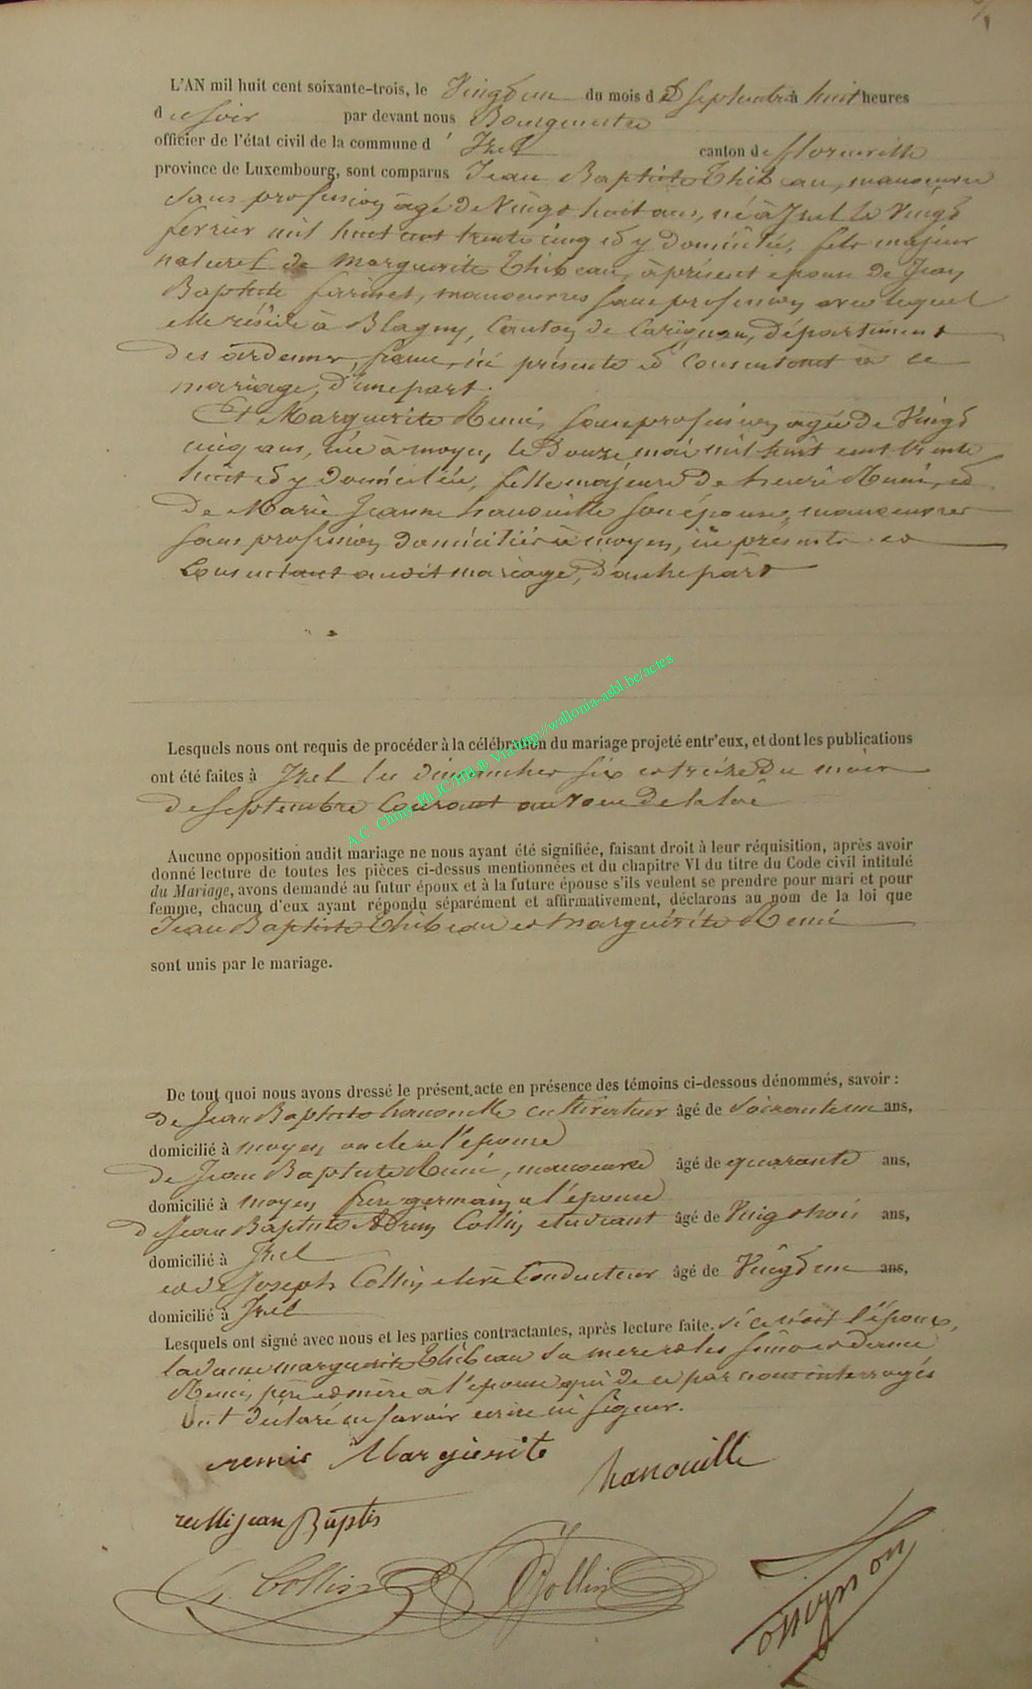 L'AN mil huit cent soixante-trois, le Vingt un du mois d e Septembre à huit heures
d u soir par devant nous Bourgmestre
officier de l'état civil de la commune d' Izel canton de florenville
province de Luxembourg, sont comparus Jean Baptiste Thibeau, manoeuvre
sans profession agé de Vingt huit ans, né à Izel le Vingt
fevrier mil huit cent trente cinq et y domicilié, fils majeur
naturel de Marguerite Thibeau, à présent épouse de Jean
Baptiste farinet, manoeuvres sans profession avec lequel
elle réside à Blagny, Canton de Carignan, département
des ardennes, france, ici présente et consentant à ce
mariage, d'une part.
Et Marguerite Remi, sans profession agée de Vingt
cinq ans, née à moyen le Douze mai mil huit cent trente
huit et y domiciliée, fille majeure de henri Remi, et
de Marie Jeanne hanouille son épouse, manoeuvres
sans profession domiciliés à moyen, ici présents et
consentant audit mariage, d'autre part
A.C. Chiny Ph.JC/HB © Via http://wallonia-asbl.be/actes
Lesquels nous ont requis de procéder à la célébration du mariage projeté entr'eux, et dont les publications
ont été faites à Izel les dimanches six et treize du mois
de septembre courant au voeu de la loi
Aucune opposition audit mariage ne nous ayant été signifiée, faisant droit à leur réquisition, après avoir
donné lecture de toutes les pièces ci-dessus mentionnées et du chapitre VI du titre du Code civil intitulé
du Mariage, avons demandé au futur époux et à la future épouse s'ils veulent se prendre pour mari et pour
femme, chacun d'eux ayant répondu séparément et affirmativement, déclarons au nom de la loi que
Jean Baptiste Thibeau et Marguerite Remi
sont unis par le mariage.
De tout quoi nous avons dressé le présent acte en présence des témoins ci-dessous dénommés, savoir :
de Jean Baptiste hanouille cultivateur âgé de soixante un ans,
domicilié à moyen oncle à l'épouse
de Jean Baptiste Remi, manoeuvre âgé de quarante ans,
domicilié à moyen frère germain à l'épouse
de Jean Baptiste Adrien Collin etudiant âgé de Vingt trois ans,
domicilié à Izel
et de Joseph Collin elève Conducteur âgé de Vingt un ans,
domicilié à Izel
Lesquels ont signé avec nous et les parties contractantes, après lecture faite. si ce n'est l'époux,
la dame marguerite Thibeau sa mère et les père et mère
Remi, père et mère à l'épouse qui de ce par nous interrogés
ont déclaré ne savoir écrire ni signer.
remie Marguerite
hanouille
remi jean Baptis
Collin
Collin